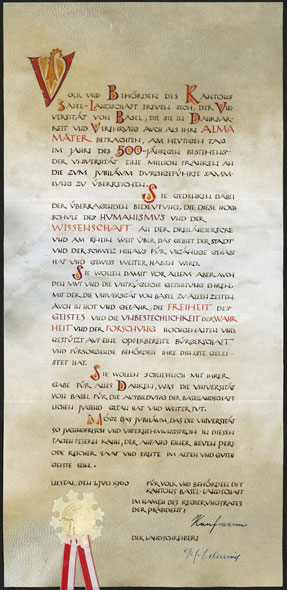 VOLK VND BEHÖRDEN DES KANTONS
BASEL-LANDSCHAFT FREVEN SICH, DER VNI-
VERSITÄT VON BASEL, DIE SIE IN DANKBAR-
KEIT VND VEREHRVNG AVCH ALS IHRE ALMA
MATER BETRACHTEN, AM HEVTIGEN TAG
IM JAHRE DES 500-JÄHRIGEN BESTEHENS
DER VNIVERSITÄT EINE MILLION FRANKEN AN
DIE ZVM JVBILÄVM DVRCHGEFÜHRTE SAMM-
LVNG ZV ÜBERREICHEN.
SIE GEDENKEN DABEI
DER ÜBERRAGENDEN BEDEVTVNG, DIE DIESE HOCH-
SCHVLE DES HVMANISMVS VND DER
WISSENSCHAFT AN DER DREILÄNDERECKE
VND AM RHEIN WEIT ÜBER DAS GEBIET DER STADT
VND DER SCHWEIZ HINAVS FÜR VNZÄHLIGE GEHABT
HAT VND GEWISS WEITER HABEN WIRD.
SIE WOLLEN DAMIT VOR ALLEM ABER AVCH
DEN MVT VND DIE VNTRÜGLICHE GESINNVNG EHREN,
MIT DER DIE VNIVERSITÄT VON BASEL ZV ALLEN ZEITEN,
AVCH IN NOT VND GEFAHR, DIE FREIHEIT DES
GEISTES VND DIE VNBESTECHLICHKEIT DER WAHR
HEIT VND DER FORSCHVNG HOCHGEHALTEN VND,
GESTÜTZT AVF EINE OPFERBEREITE BÜRGERSCHAFT
VND FÜRSORGENDE BEHÖRDEN IHRE DIENSTE GELEI-
STET HAT.
SIE WOLLEN SCHLIESSLICH MIT IHRER
GABE FÜR ALLES DANKEN, WAS DIE VNIVERSITÄT
VON BASEL FÜR DIE AVSBILDVNG DER BASELLANDSCHAFT
LICHEN JVGEND GETAN HAT VND WEITER TVT.
MÖGE DAS JVBILÄVM, DAS DIE VNIVERSITÄT
SO JVGENDFRISCH VND VNTERNEHMVNGSFROH IN DIESEN
TAGEN FEIERN KANN, DER ANFANG EINER NEVEN PERI
ODE REICHER SAAT VND ERNTE IM ALTEN VND GVTEN
GEISTE SEIN.
LIESTAL, DEN 1. JVLI 1960
FÜR VOLK VND BEHÖRDEN DES
KANTONS BASEL-LANDSCHAFT
IM NAMEN DES REGIERVNGSRATES
DER PRÄSIDENT:
Kaufmann
DER LANDSCHREIBER: